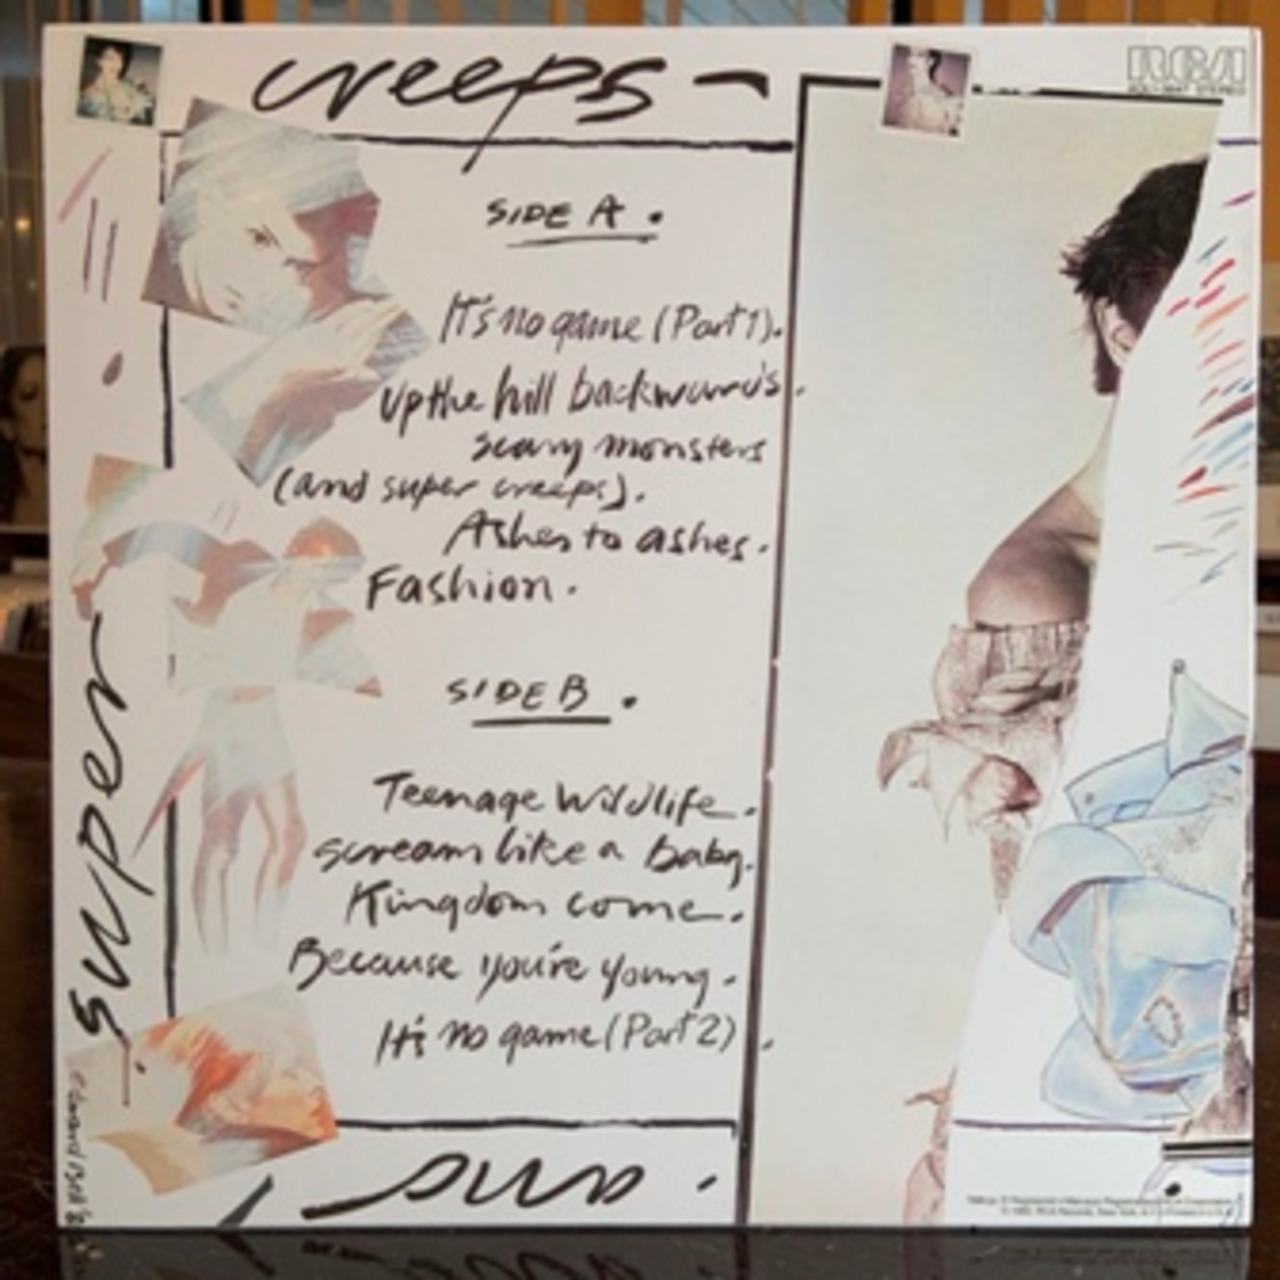 creeps -
RCA
STEREO
SIDE A.
It's no game (Part 1).
Up the hill backwards.
scary monsters
(and super creeps).
Ashes to ashes.
Fashion.
SIDE B.
Teenage Wildlife.
scream like a baby.
Kingdom come.
Because you're young.
It's no game (Part 2).
super
and.